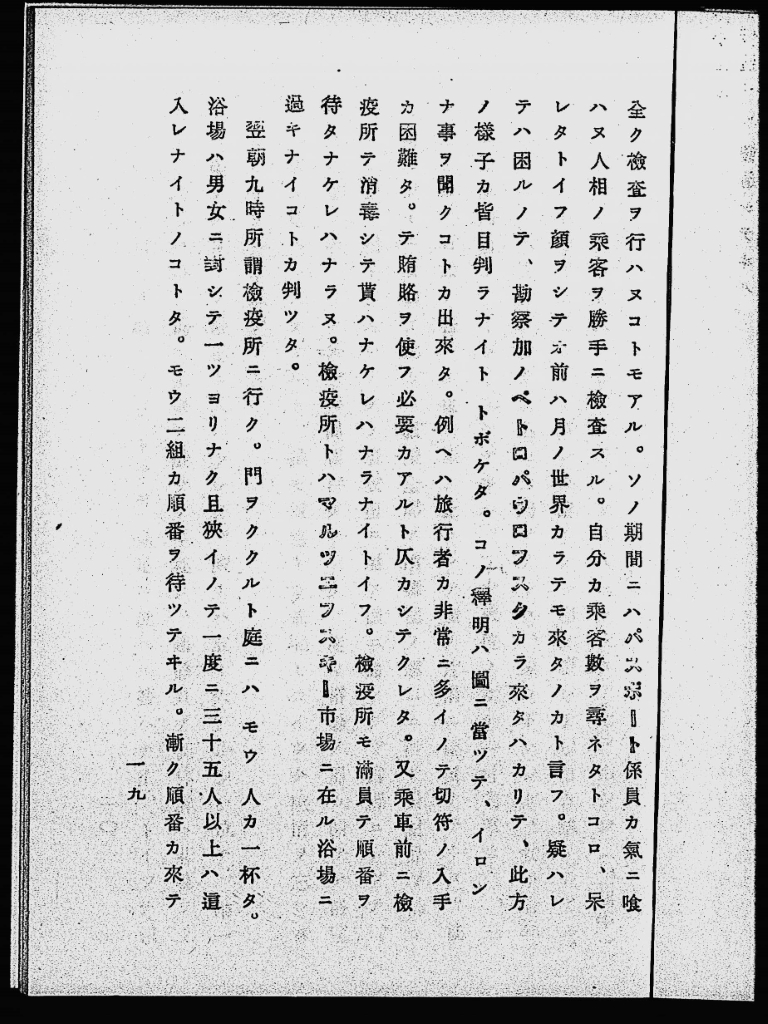 全ク檢査ヲ行ハヌコトモアル。ソノ期間ニハパスポート係員カ氣ニ喰
ハヌ人相ノ乘客ヲ勝手ニ檢査スル。自分カ乘客數ヲ尋ネタトコロ、呆
レタトイフ顏ヲシテオ前ハ月ノ世界カラテモ來タノカト言フ。疑ハレ
テハ困ルノテ、勘察加ノペトロパウロフスクカラ來タハカリテ、此方
ノ樣子カ皆目判ラナイト トボケタ。コノ釋明ハ圖ニ當ツテ、イロン
ナ事ヲ聞クコトカ出來タ。例ヘハ旅行者カ非常ニ多イノテ切符ノ入手
カ困難タ。テ賄賂ヲ使フ必要カアルト仄カシテクレタ。又乘車前ニ檢
疫所テ消毒シテ貰ハナケレハナラナイトイフ。檢疫所モ滿員テ順番ヲ
待タナケレハナラヌ。檢疫所トハマルツエフスキー市場ニ在ル浴場ニ
過キナイコトカ判ツタ。
翌朝九時所謂檢疫所ニ行ク。門ヲククルト庭ニハ モウ 人カ一杯タ。
浴場ハ男女ニ對シテ一ツヨリナク且狹イノテ一度ニ三十五人以上ハ這
入レナイトノコトタ。モウ二組カ順番ヲ待ツテヰル。漸ク順番カ來テ
一九